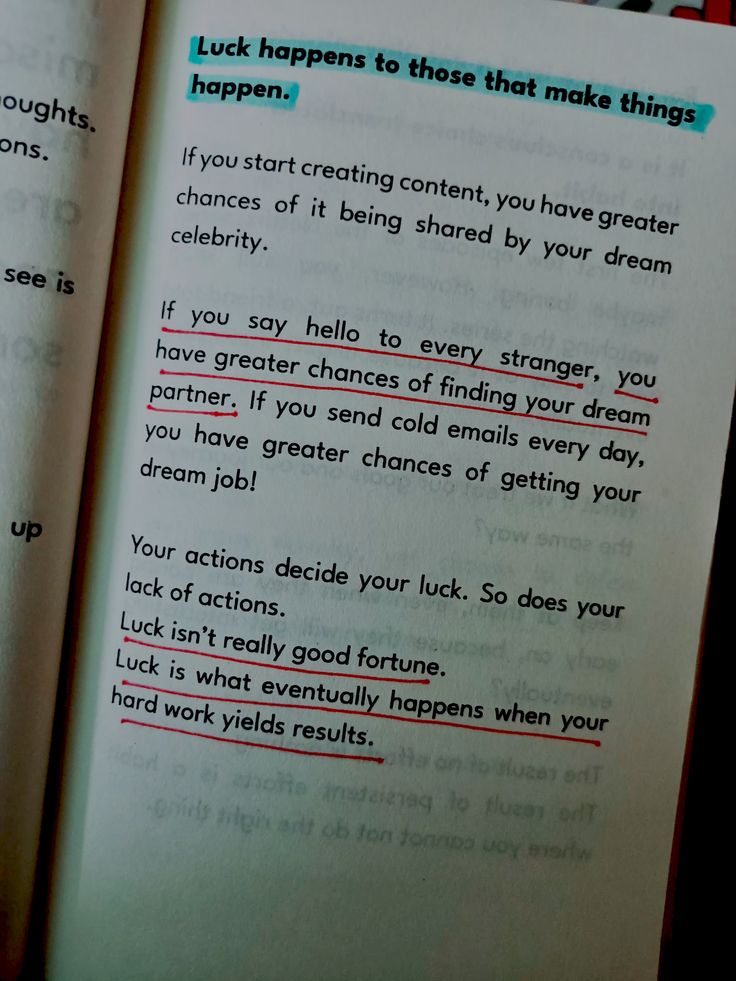 oughts.
ons.
see is
up
Luck happens to those that make things
happen.
If you start creating content, you have greater
chances of it being shared by your dream
celebrity.
If you say hello to every stranger, you
have greater chances of finding your dream
partner. If you send cold emails every day,
you have greater chances of getting your
dream job!
Your actions decide your luck. So does your
lack of actions.
Luck isn't really good fortune.
Luck is what eventually happens when your
hard work yields results.